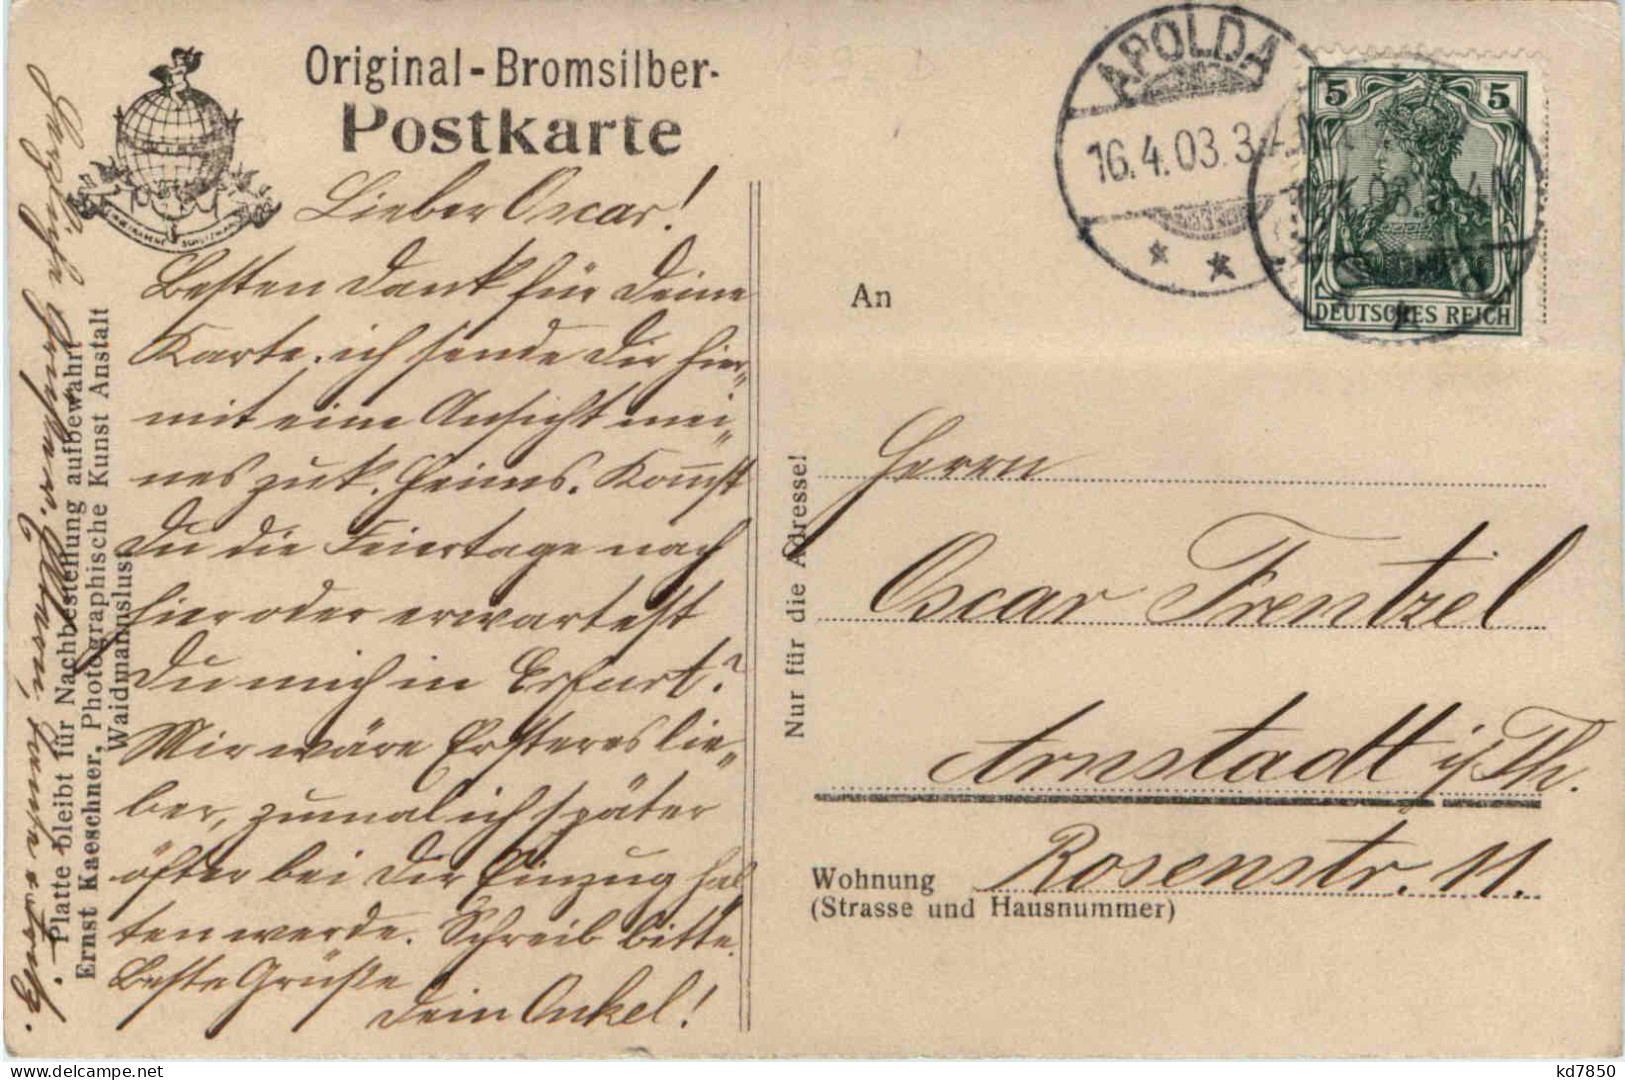 Original-Bromsilber-
Postkarte
Lieber Oscar!
Besten Dank für Deine
Karte. ich sende Dir hier„
mit eine Ansicht mei„
nes zuk. Heims. Kom̅st
Du die Feiertage nach
hier oder erwartest
Du mich in Erfurt?
Mir wäre Ersteres lie„
ber, zumal ich später
öfter bei Dir Einzug hal
ten werde. Schreib bitte.
Beste Grüße
Dein Onkel!
Platte bleibt für Nachbestellung aufbewahrt
Ernst Kaeschner, Photographische Kunst Anstalt
Waidmannslust
Nur für die Adresse!
APOLDA
16.4.03.3
5 5
DEUTSCHES REICH
An
Herrn
Oscar Frentzel
Arnstadt i/Th.
Wohnung Rosenstr. 11.
(Strasse und Hausnummer)
kd7850